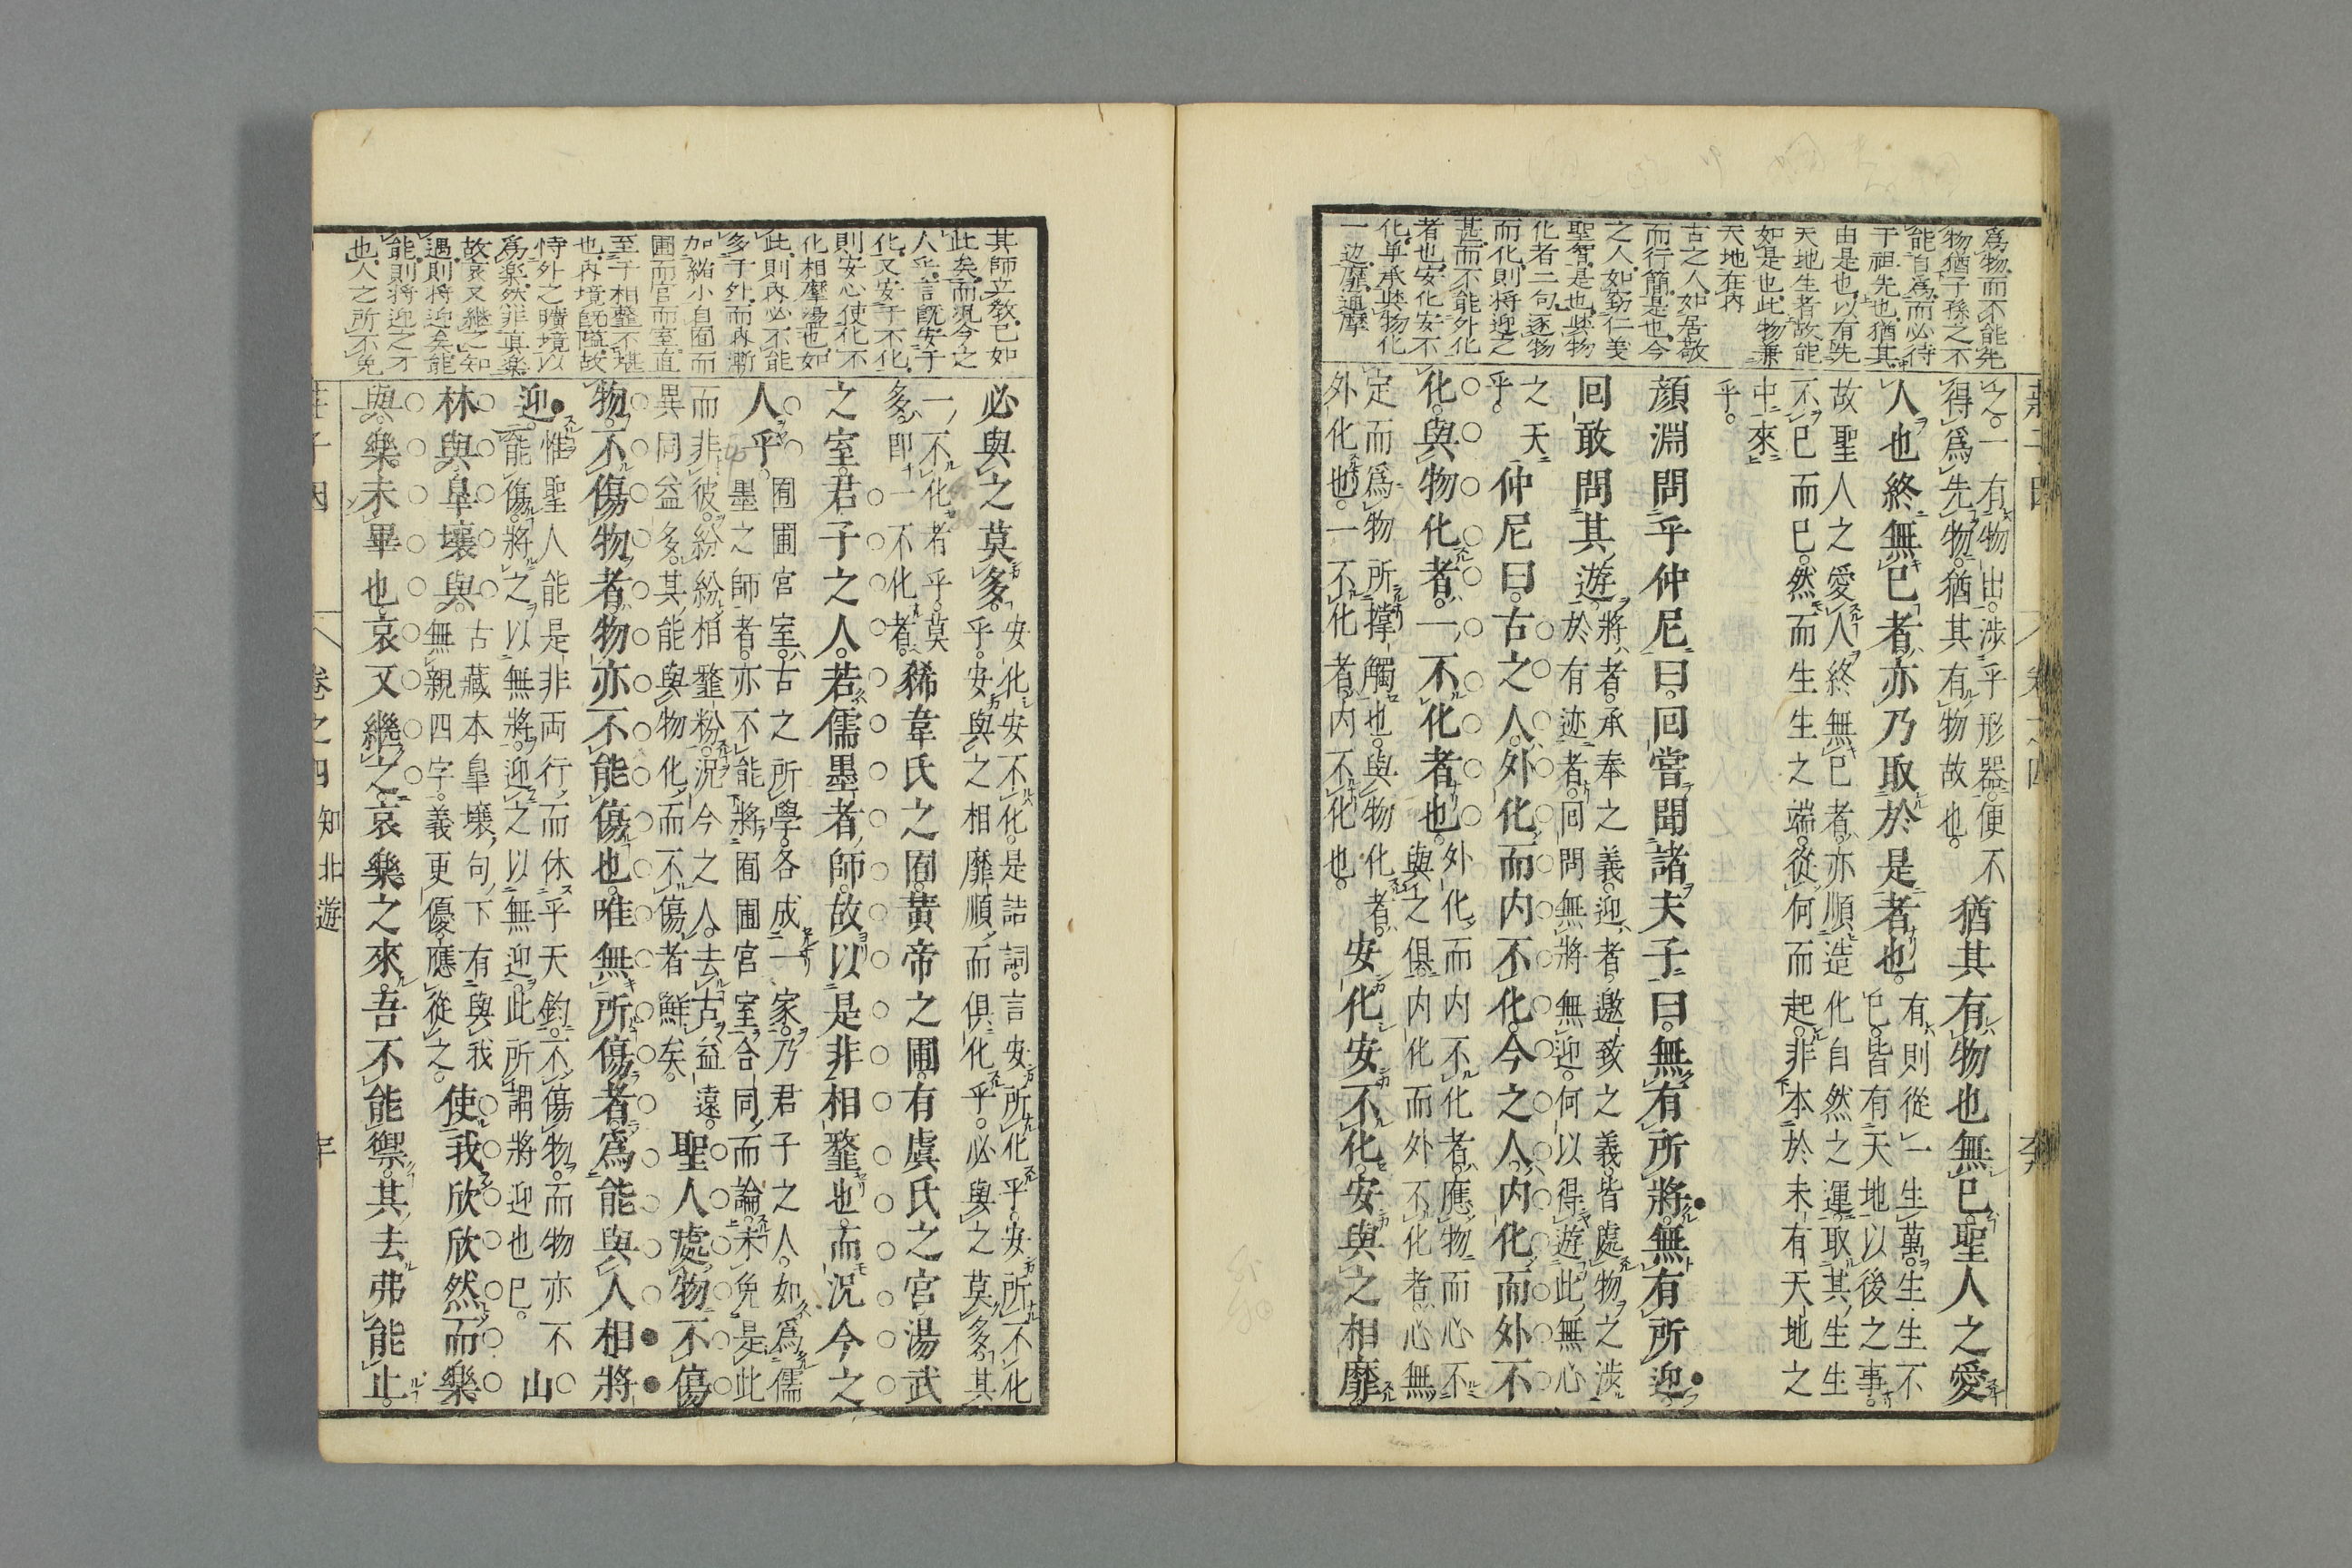 爲物.而不能先
物猶子孫之不
能自爲.而必待
于祖先也.猶其
由是也.以有先
天地生者.故能
如是也.此物兼
天地在內
古之人.如居敬
而行簡.是也.今
之人.如窃仁義
聖智.是也.與物
化者二句.逐物
而化.則將迎之
甚.而不能外化
者也.安化安不
化.单承與物化
一边.靡.摩
之。一有物出。涉乎形器。便不
得爲先物。猶其有物故也。
猶其有物也無已。聖人之愛
人也終無已者。亦乃取於是者也。
有則從一生萬。生生不
已。皆有天地以後之事。
故聖人之愛人終無已者。亦順造化自然之運。取其生生
不已而已。然而生生之端。從何而起。非本於未有天地之
中來
乎。
顔淵問乎仲尼曰。回嘗聞諸夫子曰。無有所將。無有所迎。
回敢問其遊。
將者。承奉之義。迎者。邀致之義。皆處物之涉
於有迹者。回問無將無迎。何以得遊此無心
之天
乎。
仲尼曰。古之人。外化而內不化。今之人。內化而外不
化。與物化者。一不化者也。
外化而內不化者。應物而心不
與之俱。內化而外不化者。心無
定而爲物所撑觸也。與物化者。
外化也。一不化者。內不化也。
安化安不化。安與之相靡。
其師立教.已如
此矣.而況今之
人乎.言既安于
化.又安于不化.
則安心使化不
化相摩盪也.如
此.則內必不能
多于外.而內漸
加縮小.自囿而
圃.而宮.而室.直
至于相䪠不堪
也.內境既隘.故
恃外之曠境以
爲樂.然非真樂.
故哀又繼之.知
遇.則將迎矣.能
能.則將迎之才
也.人之所不免
必與之莫多。
安化安不化。是詰詞。言安所化乎。安所不化
乎。安與之相靡順。而俱化乎。必與之莫多。其
一不化者乎。莫
多。即一不化者。
狶韋氏之囿。黃帝之圃。有虞氏之宮。湯武
之室。君子之人。若儒墨者師。故以是非相䪠也。而況今之
人乎。
囿圃宮室。古之所學。各成一家。乃君子之人。如爲儒
墨之師者。亦不能將囿圃宮室合同而論。未免是此
而非彼。紛紛相䪠粉。況今之人。去古益遠。
異同益多。其能與物化而不傷者。鮮矣。
聖人處物不傷
物。不傷物者。物亦不能傷也。唯無所傷者。爲能與人相將
迎。
惟聖人能是非兩行。而休乎天鈞。不傷物。而物亦不
能傷。將之以無將。迎之以無迎。此所謂將迎也已。
山
林與。皋壤與。
古藏本皐壤句下。有與我
無親四字。義更優。應從之。
使我欣欣然而樂
與。樂未畢也。哀又繼之。哀樂之來。吾不能禦。其去弗能止。
卷之四 知北遊